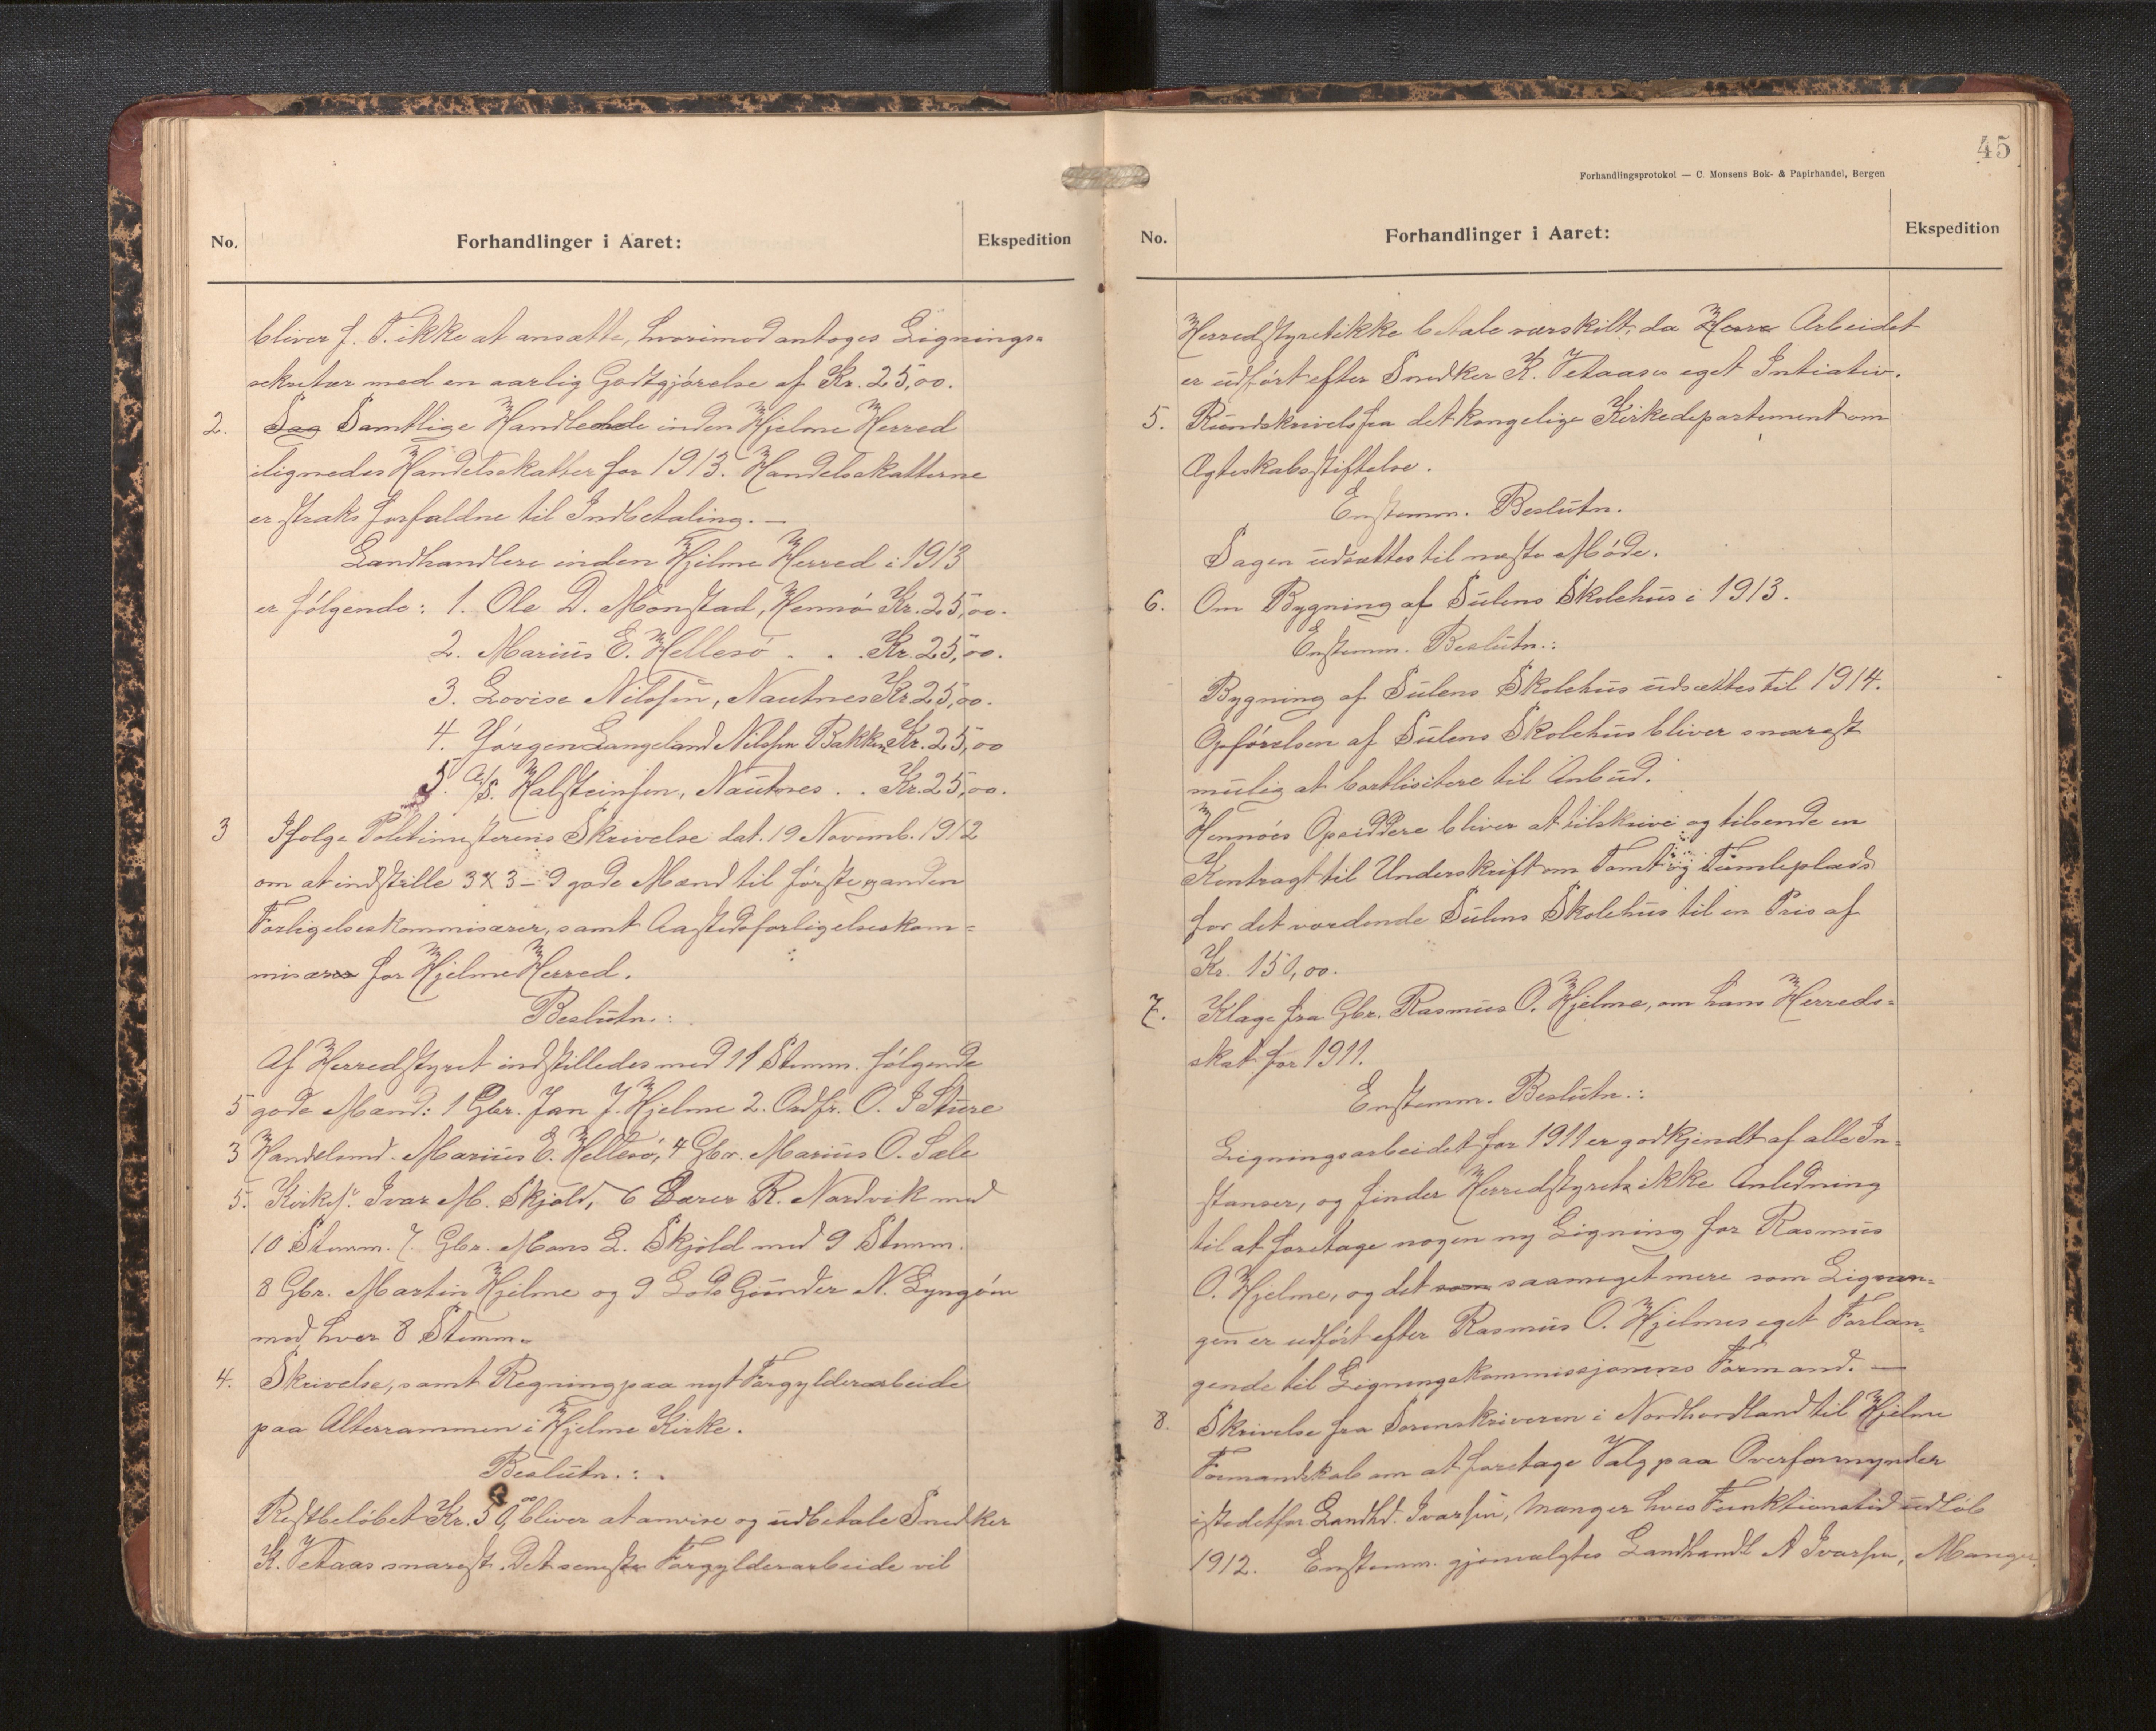 No. Forhandlinger i Aaret: Ekspedition
bliver f. T. ikke at ansætte, hvorimod antoges Lignings=
sekretær med en aarlig Godtgjørelse af Kr. 25,00.
2. Sag Samtlige Handlende inden Hjelme Herred
ilignedes Handelsskatter for 1913. Handelsskatterne
er straks forfaldne til Indbetaling. —
Landhandlere inden Hjelme Herred i 1913
er følgende: 1. Ole D. Monstad, Hennø Kr. 25,00.
2. Marius E. Hellesø . . . Kr. 25,00.
3. Lovise Nilssen, Nautnes Kr 25,00.
4. Jørgen Langeland Nilssen Bakken Kr. 25,00
5. A/S. Halsteinsen, Nautnes . . Kr. 25,00.
3 Ifølge Politimesterens Skrivelse dat. 19 Novemb. 1912
om at indstille 3 X 3 – 9 gode Mænd til første og anden
Forligelseskommisærer, samt Aastedsforligelseskom=
misærer for Hjelme Herred.
Beslutn.:
Af Herredstyret indstilledes med 11 Stemm. følgende
5 gode Mænd: 1 Gbr. Jan J. Hjelme 2. Ordfr. O. I Sture
3 Handelsmd. Marius E. Hellesø, 4 Gbr. Marius O. Sæle
5. Kirkes. Ivar M. Skjold, 6 Lærer R. Nordvik med
10 Stemm. 7. Gbr. Mons L. Skjold med 9 Stemm.
8 Gbr. Martin Hjelme og 9 Lods Gunder N. Lyngøen
med hver 8 Stemm.
4. Skrivelse, samt Regning paa nyt Forgylderarbeide
paa Alterrammen i Hjelme Kirke.
Beslutn.:.
Restbeløbet Kr. 50,00 bliver at anvise og udbetale Snedker
K. Vetaas snarest. Det seneste Forgylderarbeide vil
45
Forhandlingsprotokol — C. Monsens Bok- & Papirhandel, Bergen
No. Forhandlinger i Aaret: Ekspedition
Herredstyret ikke betale særskilt, da Herre Arbeidet
er udført efter Snedker K. Vetaases eget Intiativ.
5. Rundskrivels fra det kongelige Kirkedepartement om
Ægteskabsstiftelse.
Enstemm. Beslutn.
Sagen udsættes til næste Møde.
6. Om Bygning af Sulens Skolehus i 1913.
Enstemm. Beslutn.:
Bygning af Sulens Skolehus udsættes til 1914.
Opførelsen af Sulens Skolehus bliver snarest
mulig at bortlisitere til Anbud.
Hennøes Opsiddere bliver at tilskrive og tilsende en
Kontragt til Underskrift om Tomt og Tumleplads
for det vordende Sulens Skolehus til en Pris af
Kr. 150,00.
7. Klage fra Gbr. Rasmus O. Hjelme, om hans Herreds=
skat for 1911.
Enstemm. Beslutn.:
Ligningsarbeidet for 1911 er godkjendt af alle In=
stanser, og finder Herredstyret ikke Anledning
til at foretage nogen ny Ligning for Rasmus
O. Hjelme, og det som saameget mere som Lignin=
gen er udført efter Rasmus O. Hjelmes eget Forlan=
gende til Ligningskommissjonens Formand. —
8. Skrivelse fra Sorenskriveren i Nordhordland til Hjelme
Formandskab om at foretage Valg paa Overformynder
istedetfor Landhd. Ivarsen, Manger hvis Funktionstid udløb
1912. Enstemm. gjenvalgtes Landhandl A Ivarsen, Manger.